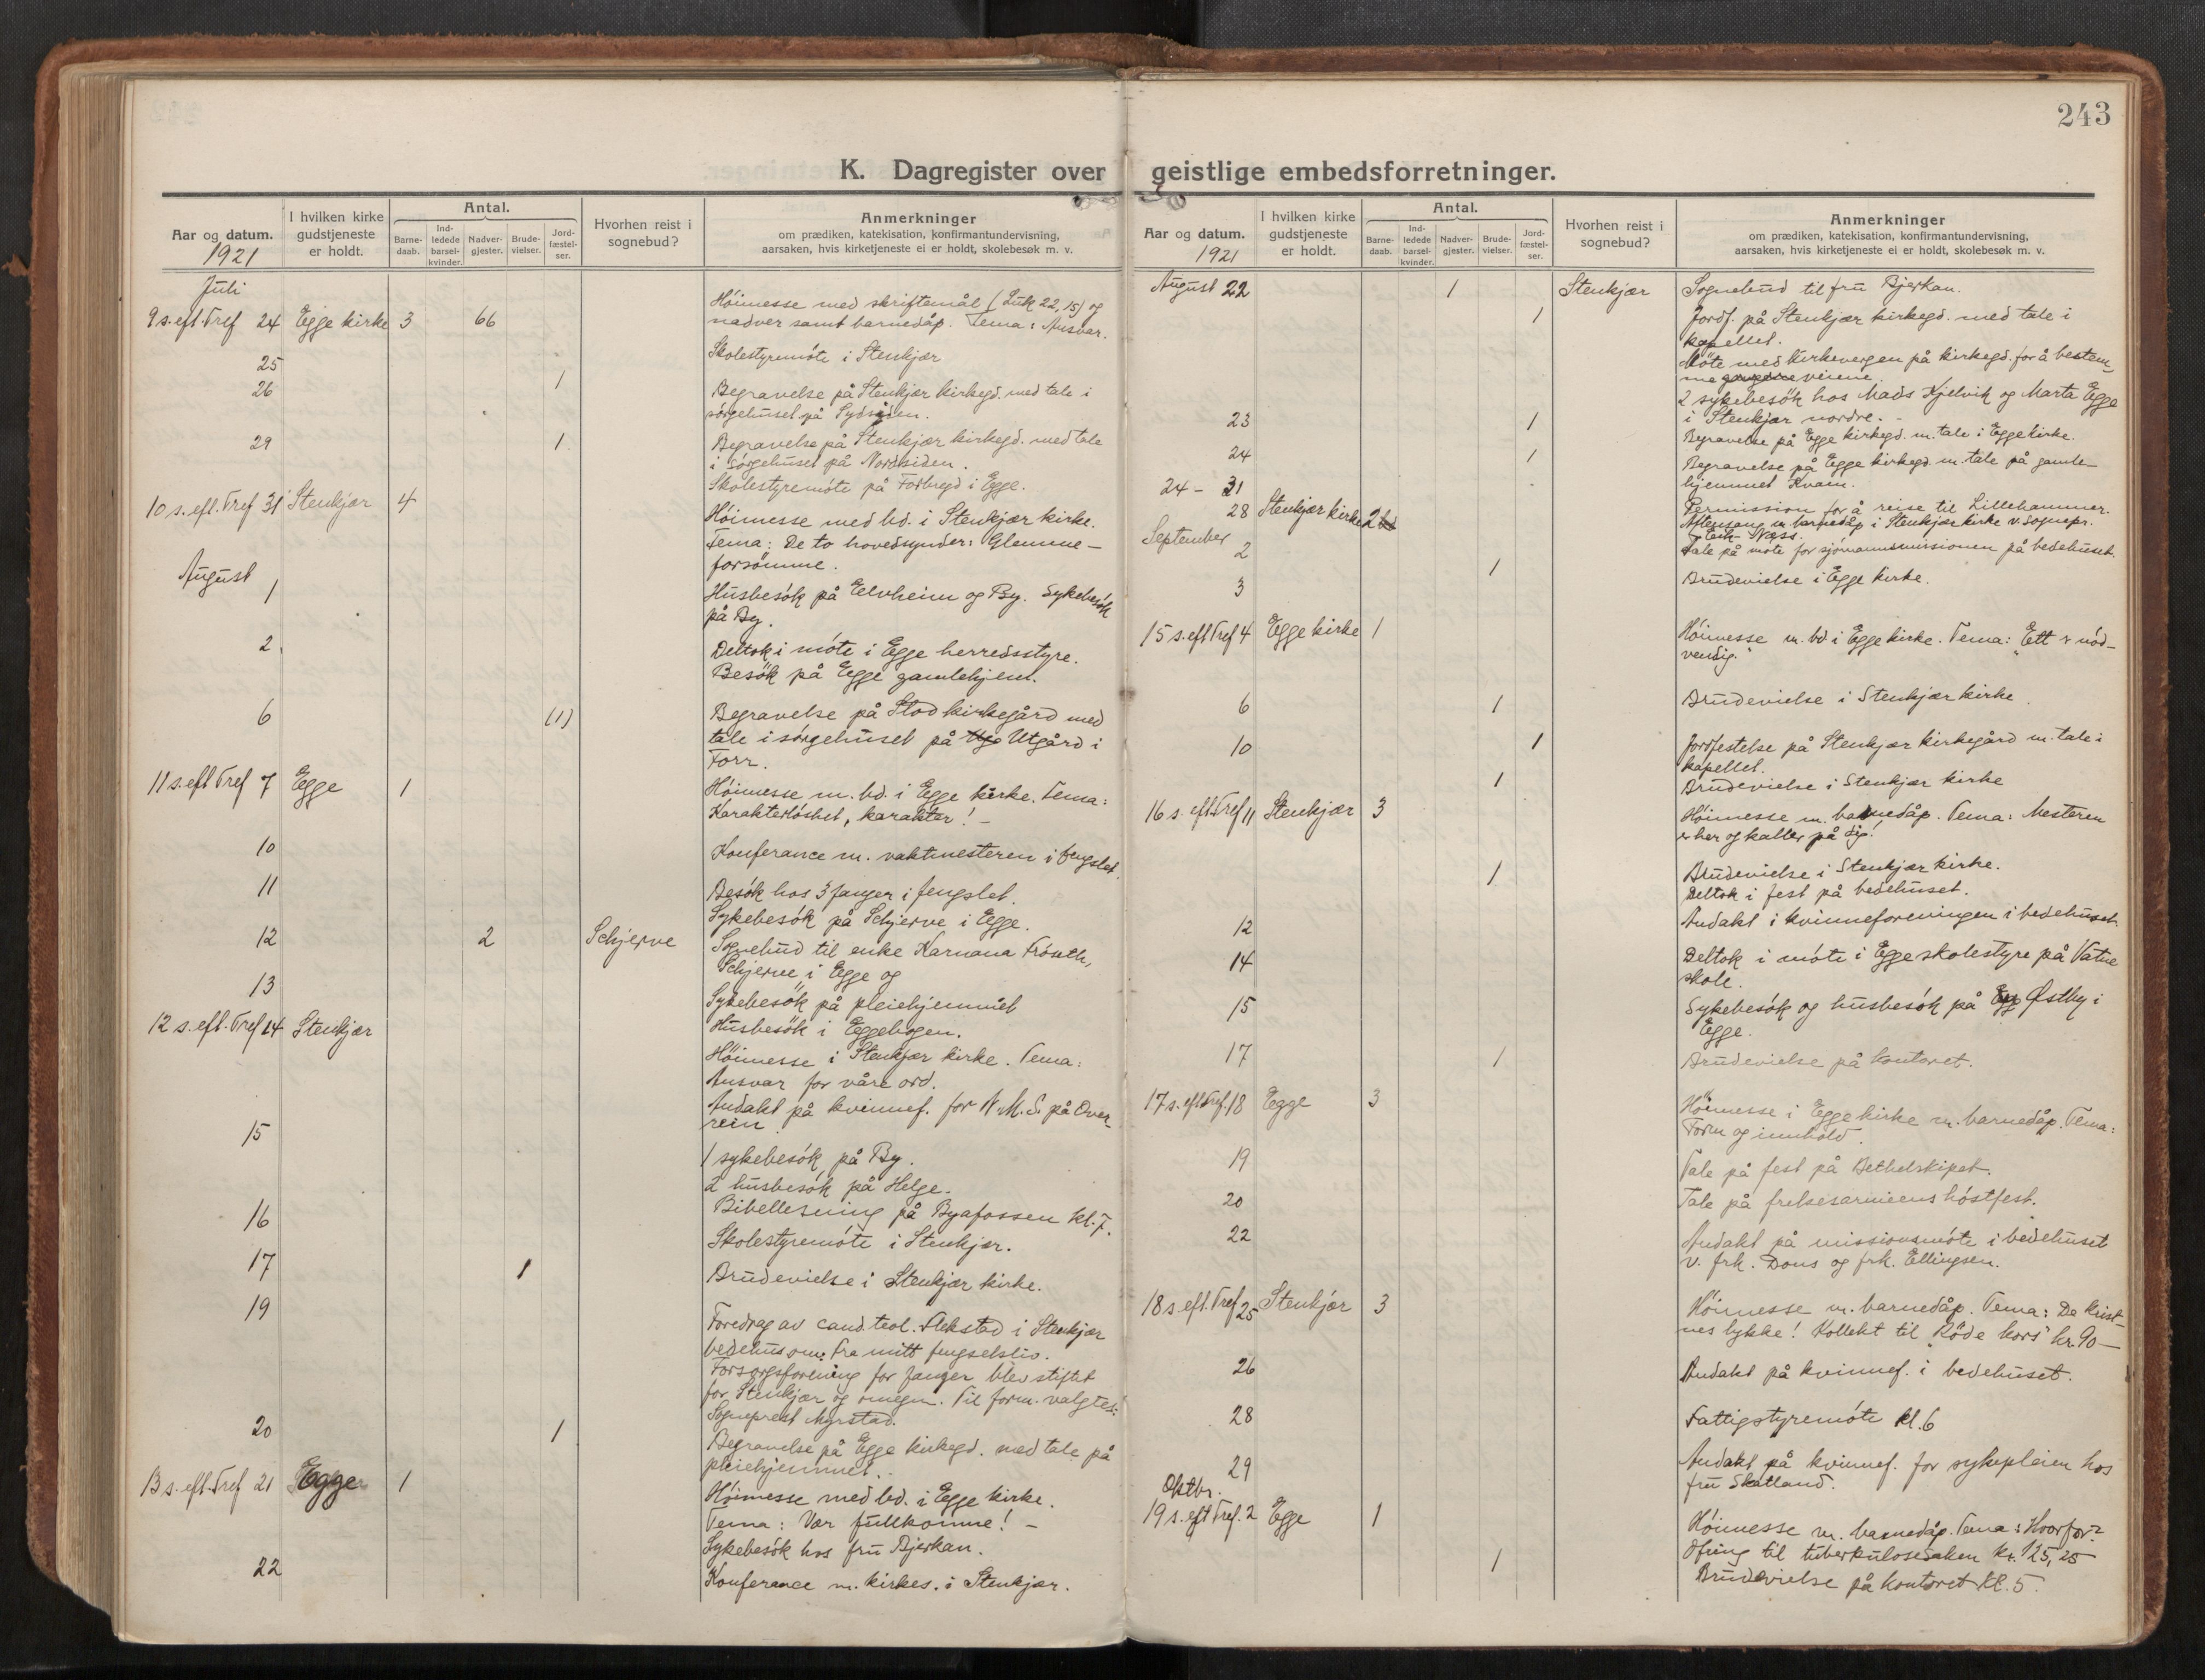 243
K. Dagregister over geistlige embedsforretninger.
Aar og datum.
1921
I hvilken kirke gudstjeneste er holdt.
Antal.
Barne-daab.
Ind-ledede barsel-kvinder.
Nadver-gjester.
Brude-vielser.
Jord-fæstel-ser.
Hvorhen reist i sognebud?
Anmerkninger
om prædiken, katekisation, konfirmantundervisning,
aarsaken, hvis kirketjeneste ei er holdt, skolebesøk m. v.
Juli
9 s. eft. Tref 24 Egge kirke 3 66 Höimesse med skriftemål (Luk 22,15) og
nadver samt barnedåp. Tema: Ansvar.
25 Skolestyremöte i Stenkjær
26 1 Begravelse på Stenkjær kirkegd. med tale i
sörgehuset på Sydsiden.
29 1 Begravelse på Stenkjær kirkegd. med tale
i sörgehuset på Nordsiden.
Skolestyremöte på Fosbregd i Egge.
10 s. eft. Tref 31 Stenkjær 4 Höimesse med bd. i Stenkjær kirke.
Tema: De to hovedsynder: Glemme –
forsömme.
August
1 Husbesök på Eelvheim og By. Sykebesök
på By.
2 Deltok i möte i Egge herredsstyre.
Besök på Egge gamlehjem.
6 (1) Begravelse på Stod kirkegård med
tale i sörgehuset på Utgård i
Forr.
11 s. eft Tref 7 Egge 1 Höimesse m. bd. i Egge kirke. Tema:
Karakterlöshet, karakter! –
10 Konferance m. vaktmesteren i fengslet.
11 Besök hos 3 fanger i fengslet.
Sykebesök på Schjerve i Egge.
12 2 Schjerve Sognebud til enke Karnana Fröseth,
Schjerve i Egge og
13 Sykebesök på pleiehjemmet
Husbesök i Eggebogen.
12 s. eft. Tref 14 Stenkjær Höimesse i Stenkjær kirke. Tema:
Ansvar for våre ord.
Andakt på kvinnef. for N.M.S. på Over-
rein.
15 1 sykebesök på By.
2 husbesök på Helge.
16 Bibellesning på Byafossen kl. 7.
Skolestyremöte i Stenkjær.
17 1 Brudevielse i Stenkjær kirke.
19 Foredrag av cand. teol. Flekstad i Stenkjær
bedehus om: Fra mitt fengselsliv.
Forsorgsforening for fanger blev stiftet
for Stenkjær og omegn. Til form. valgtes:
Sogneprest Myrstad.
20 1 Begravelse på Egge kirkegd. med tale på
pleiehjemmet.
13 s. eft. Tref 21 Egge 1 Höimesse med bd. i Egge kirke.
Tema: Vær fullkomne! –
Sykebesök hos fru Bjerkan.
22 Konferance m. kirkes. i Stenkjær.
Aar og datum.
1921
I hvilken kirke gudstjeneste er holdt.
Antal.
Barne-daab.
Ind-ledede barsel-kvinder.
Nadver-gjester.
Brude-vielser.
Jord-fæstel-ser.
Hvorhen reist i sognebud?
Anmerkninger
om prædiken, katekisation, konfirmantundervisning,
aarsaken, hvis kirketjeneste ei er holdt, skolebesøk m. v.
August 22 1 Stenkjær Sognebud til fru Bjerkan.
1 Jordf. på Stenkjær kirkegd. med tale i
kapellet.
Möte med kirkevergen på kirkegd. for å bestem-
me veiene.
2 sykebesök hos Mads Kjelvik og Marta Egge
i Stenkjær nordre. –
23 1 Begravelse på Egge kirkegd. m. tale i Egge kirke.
24 1 Begravelse på Egge kirkegd. m. tale på gamle-
hjemmet Kvam.
24 – 31 Permission for å reise til Lillehammer.
28 Stenkjær kirke 2 Aftensang m. barnedåp i Stenkjær kirke v. sognepr.
Næss.
September
2 Tale på möte for sjömannsmissionen på bedehuset.
3 1 Brudevielse i Egge kirke.
15 s. eft Tref 4 Egge kirke 1 Höimesse m. bd i Egge kirke. Tema: "Ett er nöd-
vendig."
6 1 Brudevielse i Stenkjær kirke.
10 1 Jordfestelse på Stenkjær kirkegård m. tale i
kapellet.
1 Brudevielse i Stenkjær kirke
16 s. eft. Tref 11 Stenkjær 3 Höimesse m. barnedåp. Tema: Mesteren
er her og kaller på dig!
1 Brudevielse i Stenkjær kirke.
Deltok i fest på bedehuset.
12 Andakt i kvinneforeningen i bedehuset.
14 Deltok i möte i Egge skolestyre på Vatne
skole.
15 Sykebesök og husbesök på Østby i
Egge.
17 1 Brudevielse på kontoret.
17 s. eft Tref. 18 Egge 3 Höimesse i Egge kirke m. barnedåp. Tema:
Form og innhold.
19 Tale på fest på Bethelskipet.
20 Tale på frelsesarmeens höstfest.
22 Andakt på missionsmöte i bedehuset
v. frk. Dons og frk. Ellingsen.
18 s. eft. Tref 25 Stenkjær 3 Höimesse m. barnedåp. Tema: De krist-
nes lykke! Kollekt til "Röde kors" kr. 90 –
26 Andakt på kvinnef. i bedehuset.
28 Fattigstyremöte kl. 6
29 Andakt på kvinnef. for sykepleien hos
fru Skatland.
Oktbr.
19 s. eft Tref. 2 Egge 1 Höimesse m. barnedåp. Tema: Hvorfor?
Ofring til tuberkulosesaken kr. 125,25
1 Brudevielse på kontoret kl. 5.